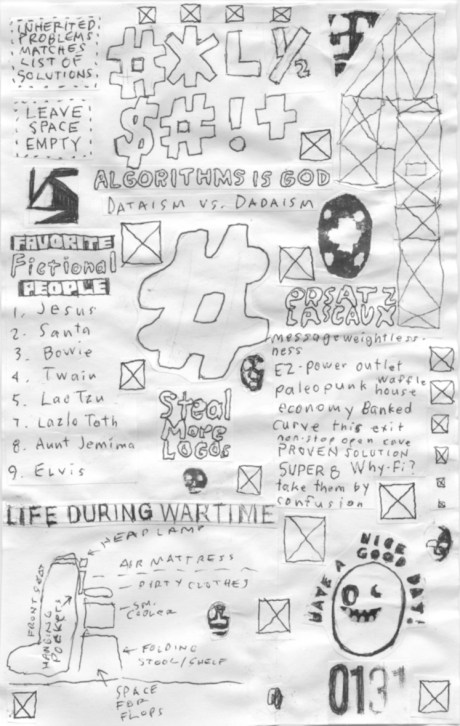 INHERITED
PROBLEMS
MATCHES
LIST OF
SOLUTIONS.
#*L Y2
$#!+
LEAVE
SPACE
EMPTY
ALGORITHMS IS GOD
DATAISM VS. DADAISM
FAVORITE
Fictional
PEOPLE
1. Jesus
2. Santa
3. Bowie
4. Twain
5. Lao Tzu
7. Lazlo Toth
8. Aunt Jemima
9. ELVIS
#
Steal
More
LOGOS
ERSATZ
LASCAUX
message weightless-
ness
EZ-power outlet
paleopunk waffle
house
economy Banked
curve this exit
non-stop open cave
PROVEN SOLUTION
SUPER 8 Why-Fi?
take them by
confusion
LIFE DURING WARTIME
HEADLAMP
AIR MATTRESS
DIRTY CLOTHES
SM.
COOLER
FRONT SEAT
HANGING
Pockets
FOLDING
STOOL/SHELF
SPACE
FOR
FLOPS
HAVE A NICE
GOOD DAY!
0131